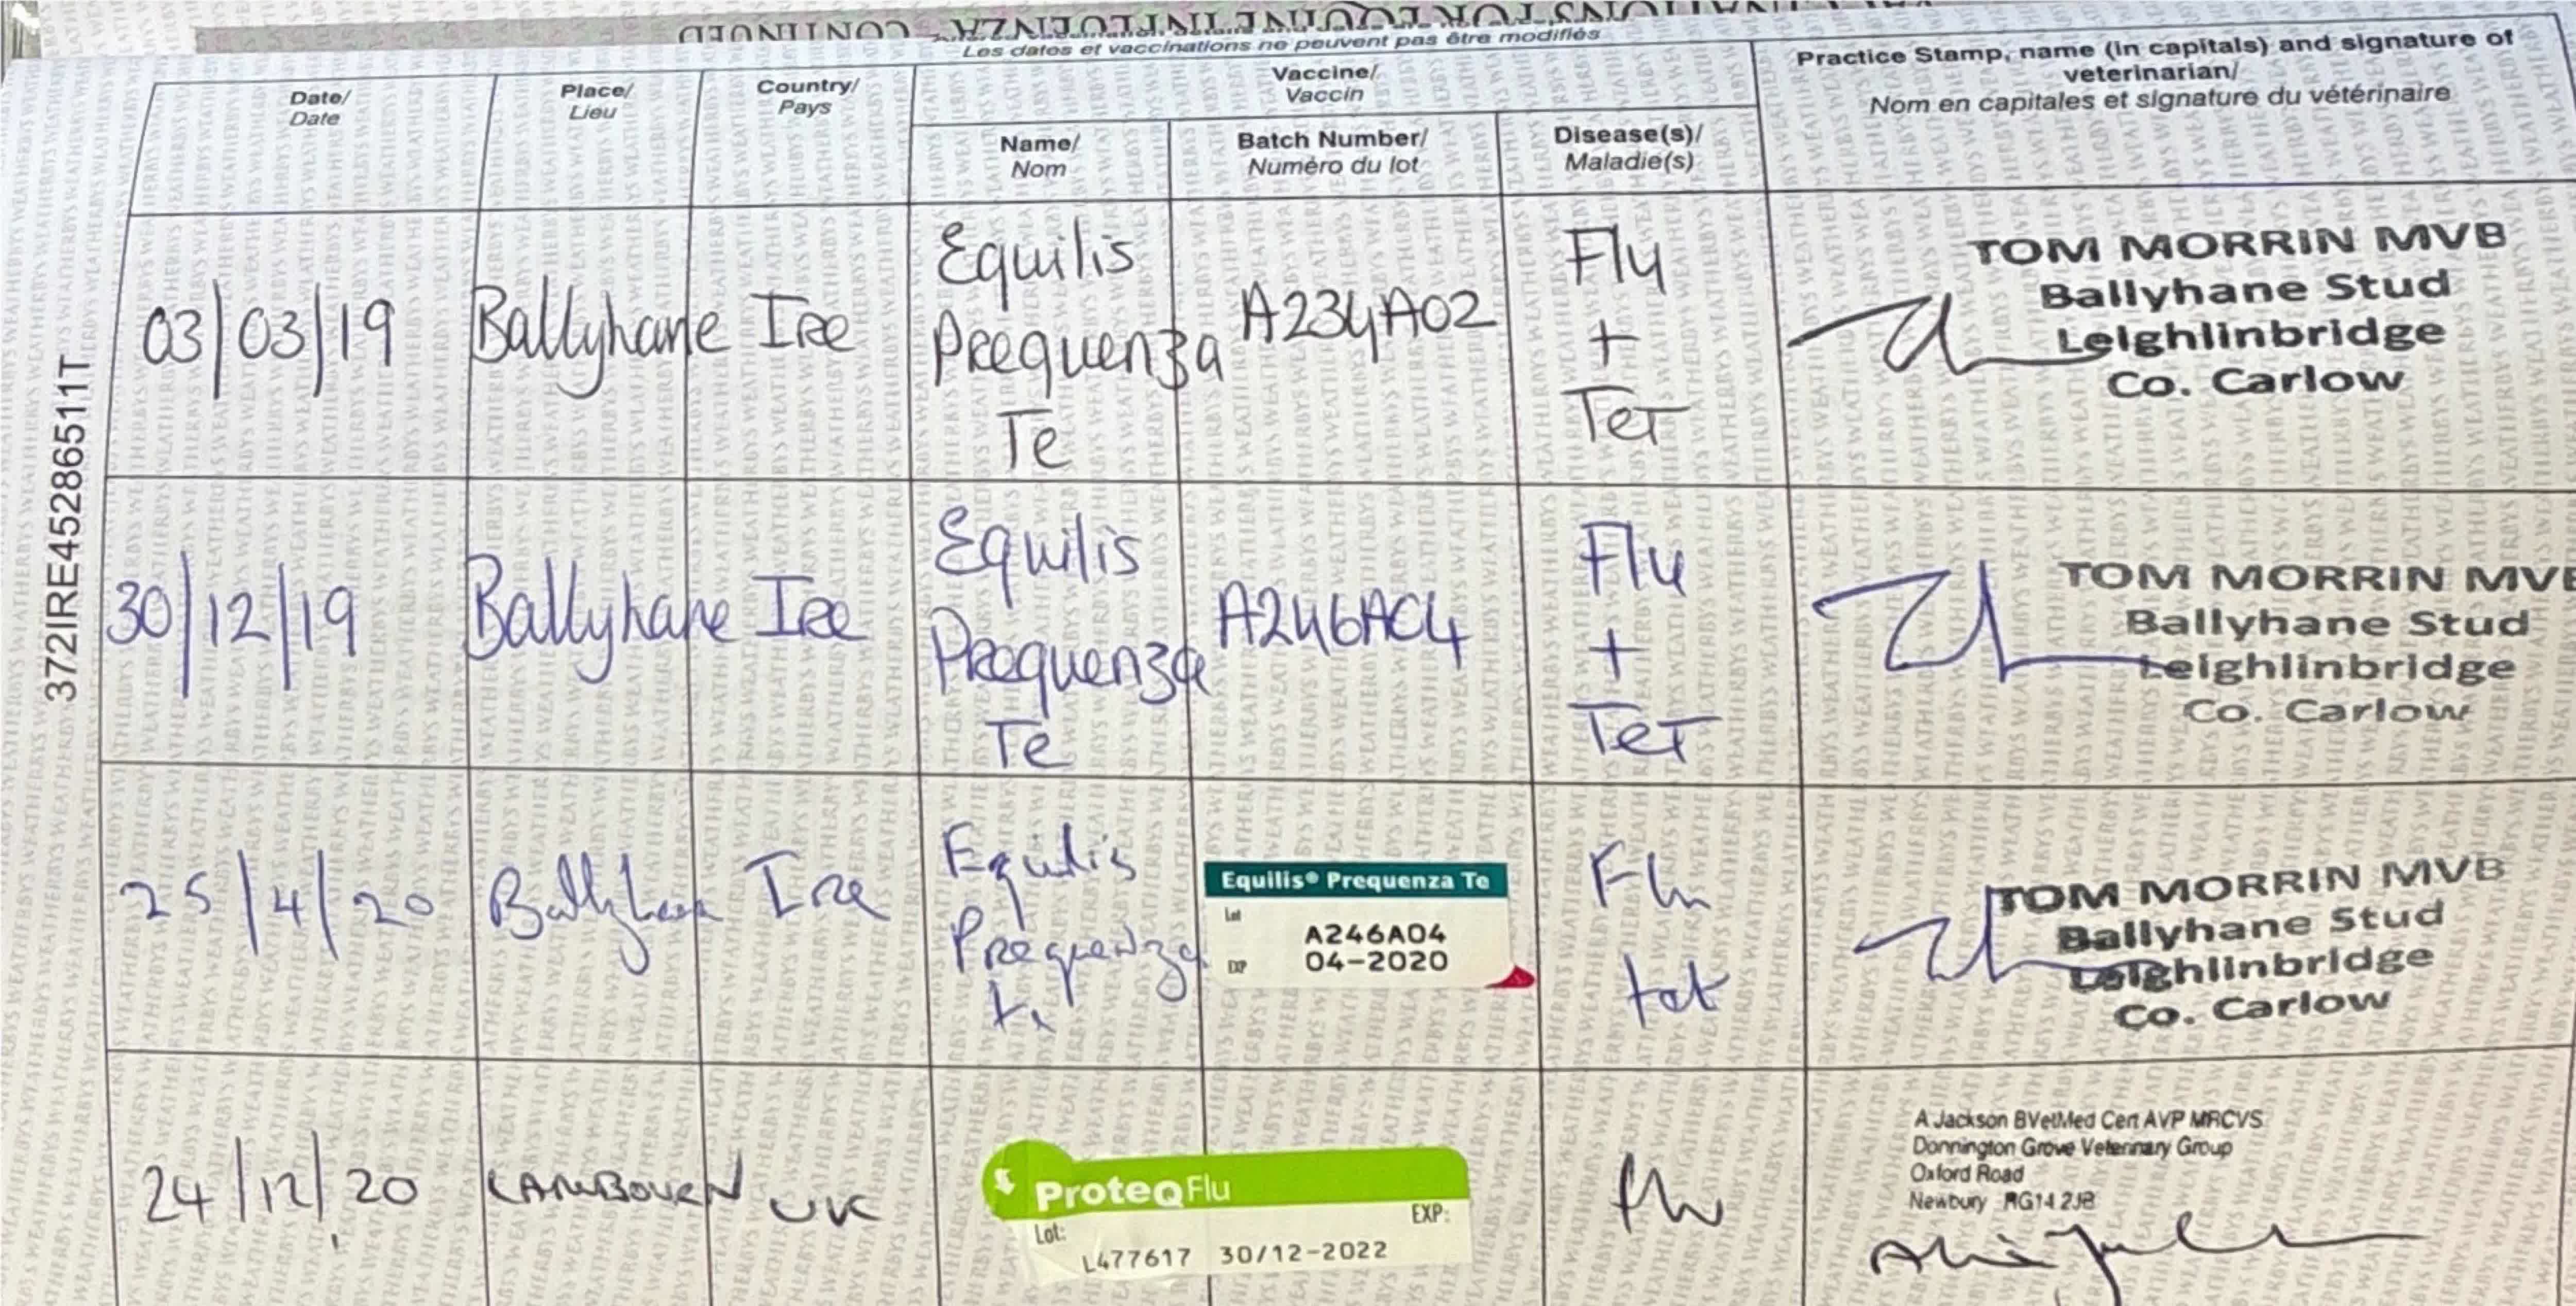 VACCINATIONS FOR EQUINE INFLUENZA - CONTINUED
Les dates et vaccinations ne peuvent pas être modifiés
Date/
Date
Place/
Lieu
Country/
Pays
Vaccine/
Vaccin
Name/
Nom
Batch Number/
Numéro du lot
Disease(s)/
Maladie(s)
Practice Stamp, name (in capitals) and signature of
veterinarian/
Nom en capitales et signature du vétérinaire
372IRE45286511T
03/03/19
Ballyhane
Ire
Equilis
Prequenza
Te
A234A02
Flu
+
Tet
TOM MORRIN MVB
Ballyhane Stud
Leighlinbridge
Co. Carlow
30/12/19
Ballyhane
Ire
Equilis
Prequenza
Te
A246A04
Flu
+
Tet
TOM MORRIN MVB
Ballyhane Stud
Leighlinbridge
Co. Carlow
25/4/20
Ballyhane
Ire
Equilis
Prequenza
te
Equilis® Prequenza Te
Lot
A246A04
EXP
04-2020
Flu
tet
TOM MORRIN MVB
Ballyhane Stud
Leighlinbridge
Co. Carlow
24/12/20
LAMBOURN
UK
ProteqFlu
Lot:
EXP:
L477617 30/12-2022
flu
A Jackson BVetMed Cert AVP MRCVS
Donnington Grove Veterinary Group
Oxford Road
Newbury RG14 2JB